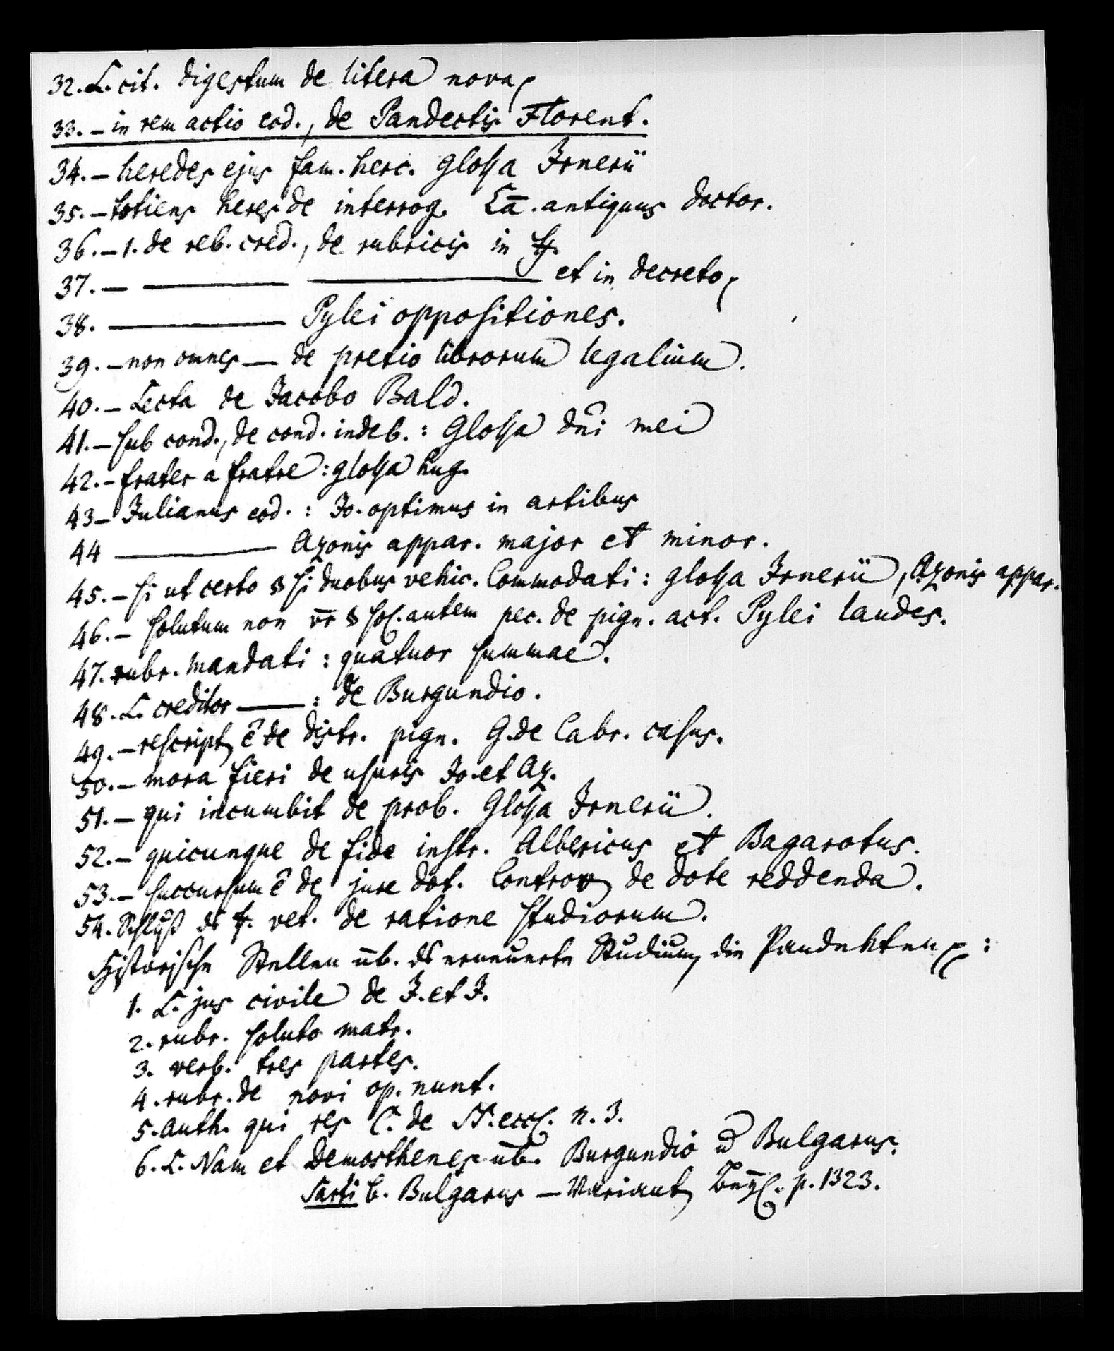 32. L. cit. digestum de litera nova
33. – in rem actio eod., de Pandectis Florent.
34. – heredes ejus fam. herc. glossa Irnerii
35. – totiens heres de interrog. antiquus doctor.
36. – 1. de reb. cred., de rubricis in
37. – ——— ——— et in decreto
38. ——— Pylei oppositiones.
39. – non omnes — de pretio librorum legalium.
40. – Lecta de Jacobo Bald.
41. – sub cond., de cond. indeb.: Glossa dn̄i mei
42. – frater a fratre: glossa hug.
43 – Julianus eod.: Jo. optimus in artibus
44 ——— Azonis appar. major et minor.
45. – si ut certo § si duobus vehic. Commodati: glossa Irnerii, Azonis appar.
46. – solutum non § sol. autem pec. de pign. act. Pylei laudes.
47. rubr. mandati: quatuor summae.
48. L. creditor —: de Burgundio.
49. – rescript de distr. pign. G. de Cabr. casus.
50. – mora fieri de usuris Jo. et Az.
51. – qui incumbit de prob. Glossa Irnerii.
52. – quicunque de fide instr. Albericus et Bagarotus.
53. – succursum de jure dot. Controv de dote reddenda.
54. Schluß ds vet. de ratione studiorum.
Historische Stellen üb. ds erneuerte Studium die Pandekten:
1. L. jus civile de J. et J.
2. rubr. soluto matr.
3. verb. tres partes.
4. rubr. de novi op. nunt.
5. auth. qui res C. de SS. eccl. n. 3.
6. L. Nam et Demosthenes üb. Burgundio Bulgarus.
Sarti b. Bulgarus – Variant p. 1323.